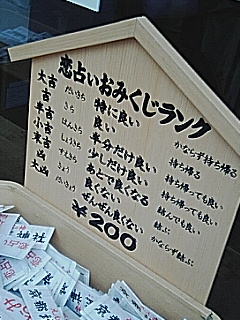 恋占いおみくじランク
大吉 だいきち 特に良い かならず持ち帰る
吉 きち 良い 持ち帰る
半吉 はんきち 半分だけ良い 持ち帰っても良い
小吉 しょうきち 少しだけ良い 持ち帰っても良い
末吉 すえきち あとで良くなる 結んでも良い
凶 きょう 良くない 結ぶ
大凶 だいきょう ぜんぜん良くない かならず結ぶ
¥200
神社